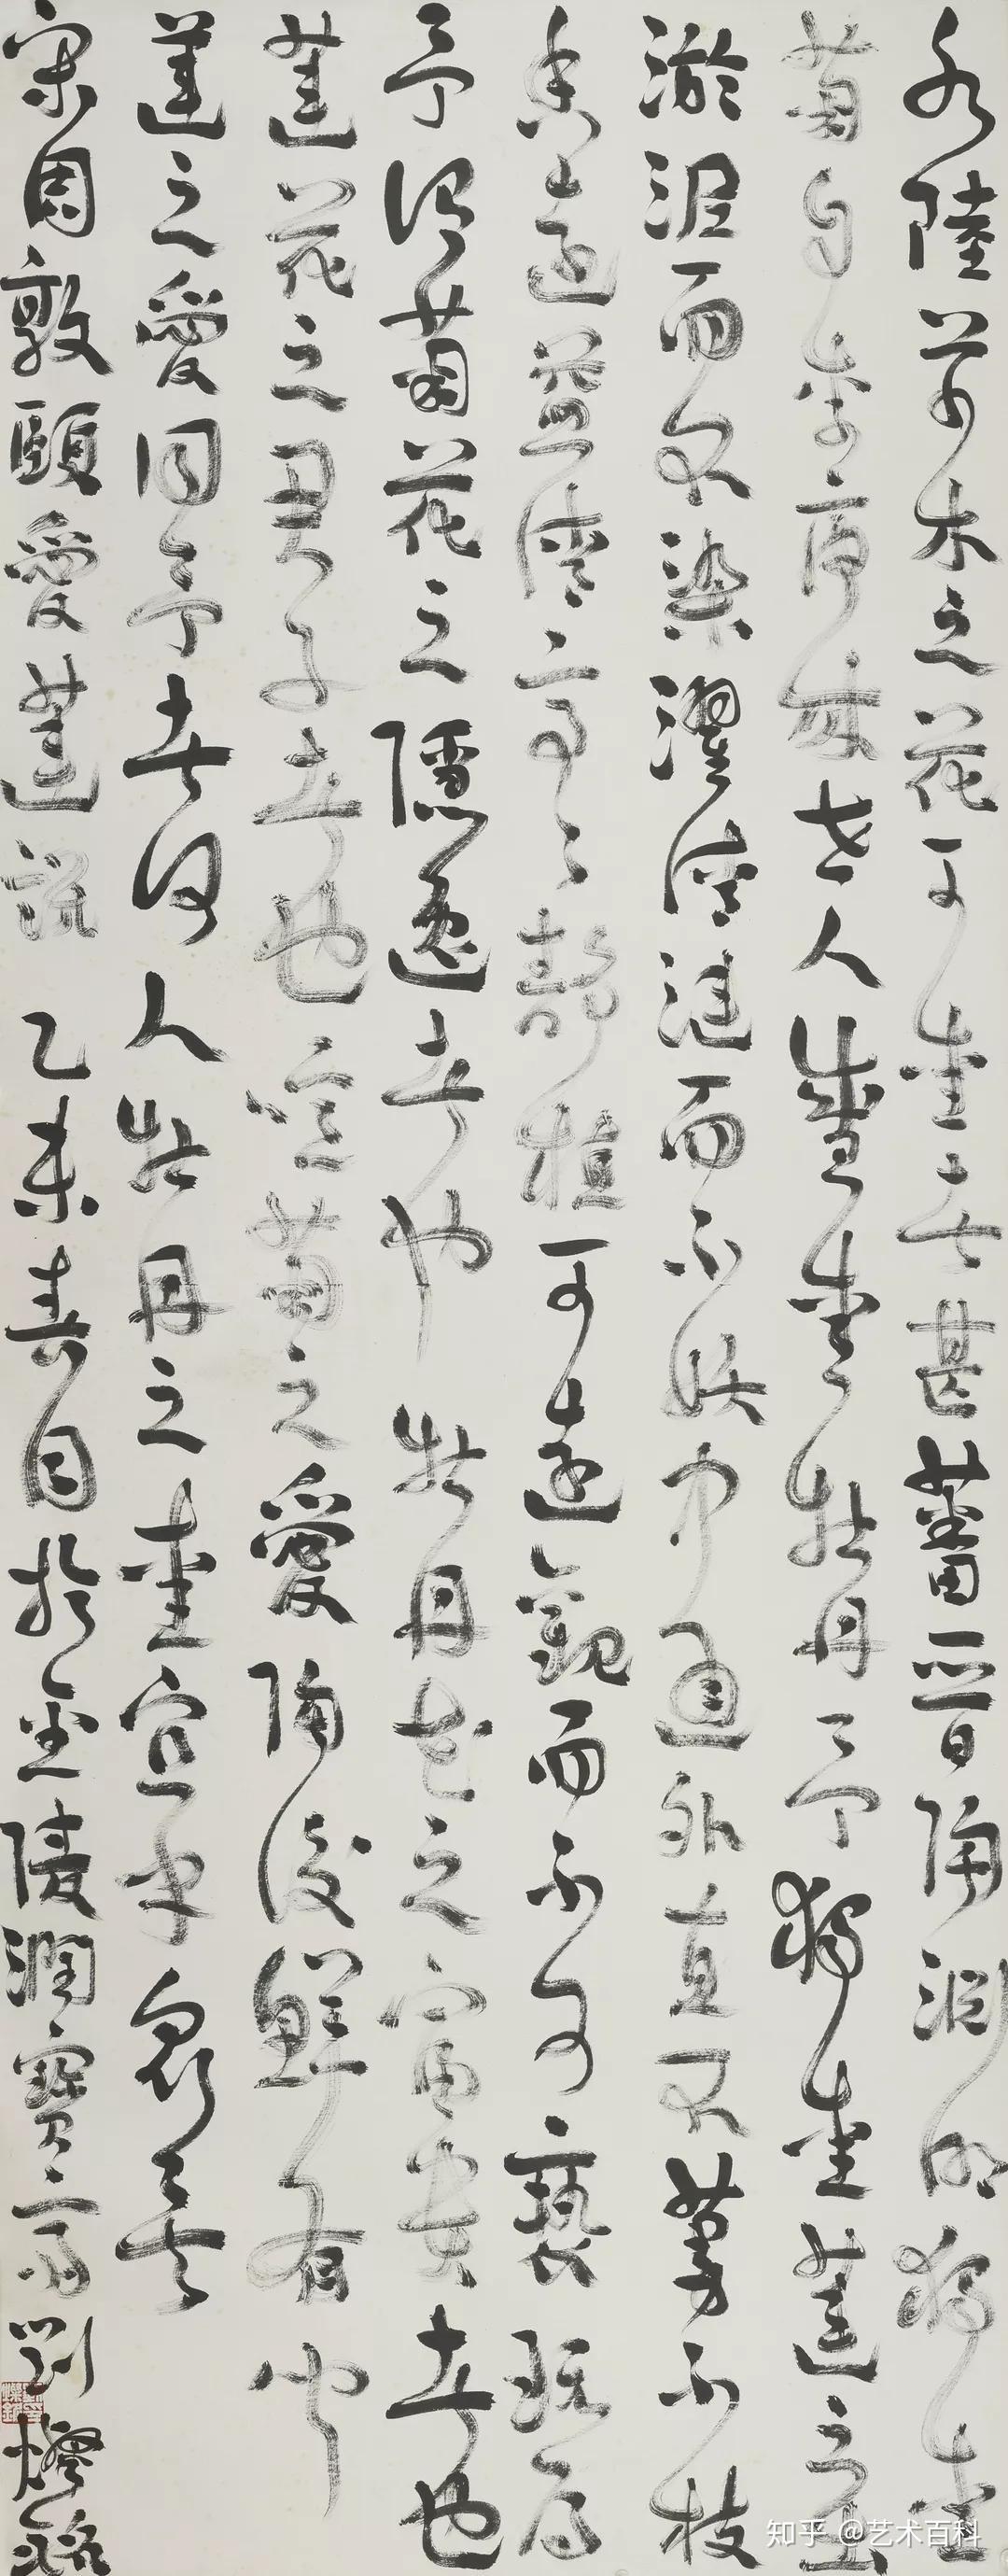 水陸草木之花可愛者甚蕃晉陶淵明獨愛
菊自李唐來世人盛愛牡丹予獨愛蓮之出
淤泥而不染濯清漣而不妖中通外直不蔓不枝
香遠益清亭亭靜植可遠觀而不可褻玩焉
予謂菊花之隱逸者也牡丹花之富貴者也
蓮花之君子者也噫菊之愛陶後鮮有聞
蓮之愛同予者何人牡丹之愛宜乎衆矣
宋周敦頤愛蓮說 乙未春日於金陵潤寶齋劉燦銘
知乎 @艺术百科